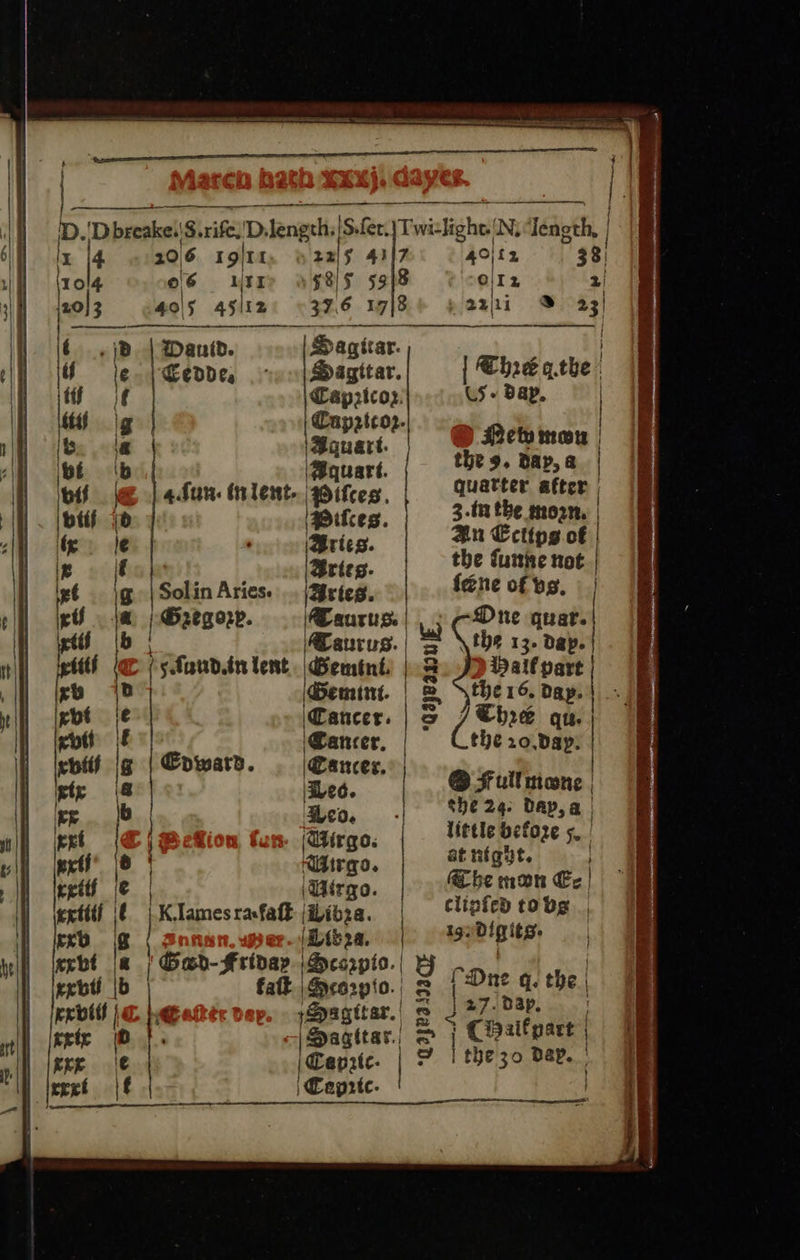 March hath xxxj. dayes.
D. D breake. S.rise. D.length. S.set. Twi-light. N. length.
1 4 20 6 19 11 22 5 41 7 40 12 38
10 4 0 6 1 11 58 5 59 8 0 12 2
20 3 40 5 45 12 37 6 17 8 22 11 23
i d Dauid. Sagitar.
ij e Cedde, Sagitar. Thrée q.the
iij f Capricor. 5. day.
iiij g Capricor.
v a Aquari. New moon
vi b Aquari. the 9. day, a
vij c 4.sun. in lent. Pisces. quarter after
viij d Pisces. 3.in the morn.
ix e Aries. An Eclips of
x f Aries. the sunne not
xi g Solin Aries. Aries. séene of vs.
xij a Gregory. Taurus. One quar.
xiij b Taurus. the 13. day.
xiiij c 5.sund.in lent. Gemini. Half part
xv d Gemini. the 16. day.
xvi e Cancer. Thrée qu.
xvij f Cancer. the 20.day.
xviij g Edward. Cancer.
xix a Leo. Full moone
xx b Leo. the 24. day, a
xxi c Passion sun. Virgo. little before 5.
xxij d Virgo. at night.
xxiij e Virgo. The moon Ec
xxiiij f K.Iames ra.fast Libra. clipsed to vs
xxv g Annun. Mar. Libra. 19. Digits.
xxvi a Good-Friday Scorpio.
xxvij b fast Scorpio. One q. the
xxviij c Easter day. Sagittar. 27. day.
xxix d Sagittar. Half part
xxx e Capric. the 30 day.
xxxi f Capric.